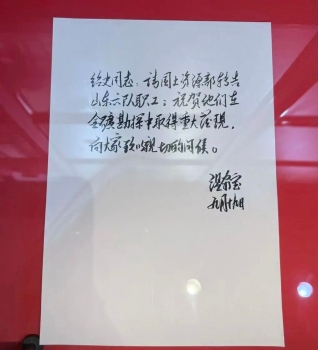 绍史同志：请国土资源部转告
山东六队职工；祝贺他们在
金矿勘探中取得重大发现，
向大家致以亲切的问候。
温家宝
九月十九日